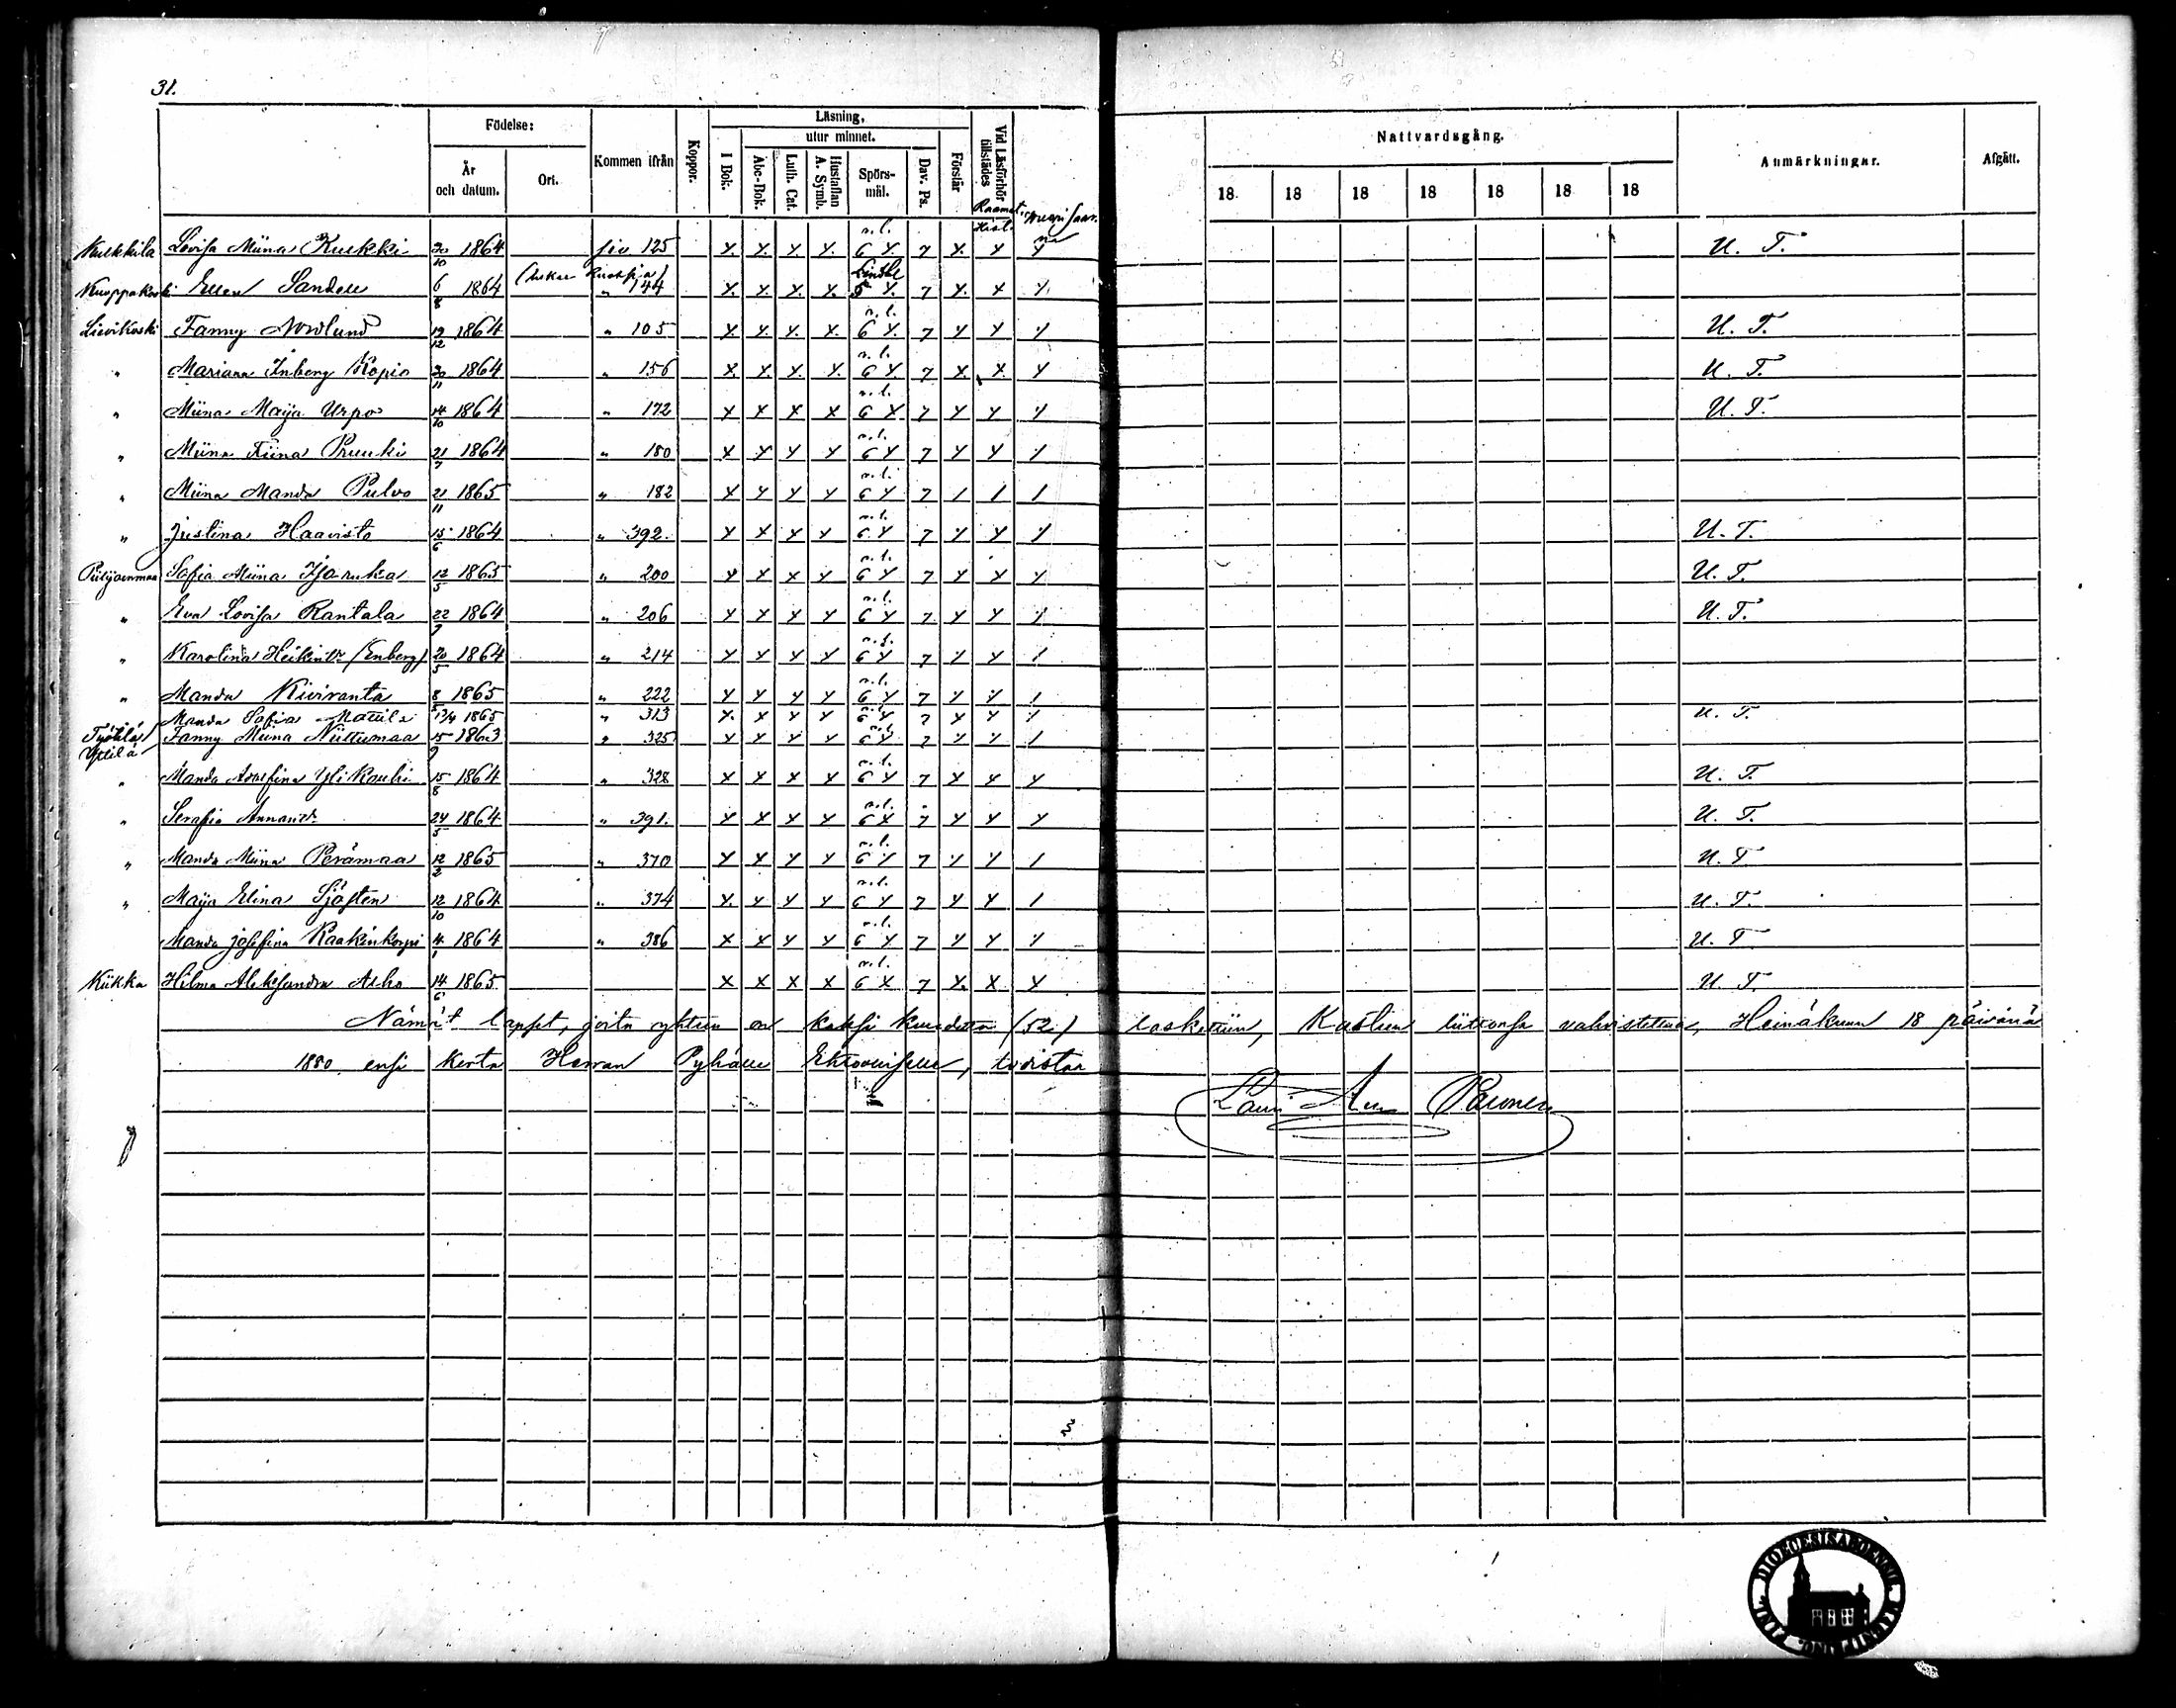 31.
Födelse:
Läsning,
utur minnet.
År och datum.
Ort.
Kommen ifrån
Koppor.
I Bok.
Abc-Bok.
Luth. Cat.
Hustaflan A. Symb.
Spörs-mål.
Dav. Ps.
Förstår
Vid Läsförhör tillstädes
Raamat. Hist.
Nattvardsgång.
18 18 18 18 18 18 18
Anmärkningar.
Afgått.
Kukkila Lovisa Miina Kukki 20/10 1864 siv 125 x. x. x x. n.l. 6 x. 7 x. x x U. T.
Kuoppakoski Ellen Sandell 6/8 1864 " 144 x. x. x. x. 5 x. 7 x. x x
Lievikoski Fanny Nordlund 19/12 1864 " 105 x x. x. x. n.l. 6 x. 7 x x x U. T.
" Mariana Inberg Kopio 20/11 1864 " 156 x. x. x. x. n.l. 6 x. 7 x. x. x U. T.
" Miina Maija Urpo 14/10 1864 " 172 x x x x n.l. 6 x 7 x x x U. T.
" Miina Fiina Pruuki 21/7 1864 " 180 x x x x n.l. 6 x 7 x x x
" Miina Manda Pulvo 21/11 1865 " 182 x x x x n.l. 6 x 7 / / /
" Justina Haavisto 15/6 1864 " 392. x x x x n.l. 6 x 7 x x x U. T.
Piilijoenmaa Sofia Miina 12/5 1865 " 200 x x x x n.l. 6 x 7 x x x U. T.
" Eva Lovisa Rantala 22/9 1864 " 206 x x x x n.l. 6 x 7 x x x U. T.
" Karolina Heikintr (Enberg) 20/5 1864 " 214 x x x x n.l. 6 x 7 x x /
" Manda Kiviranta 8/5 1865 " 222 x x x x n.l. 6 x 7 x x /
Manda Sofia Mattila 13/4 1865 " 313 x. x x x n.l. 6 x 7 x x x U. T.
Työtilä Yttilä Fanny Miina Niittumaa 15/9 1863 " 325 x x x x n.l. 6 x 7 x x /
" Manda Josefina Yli Kauhi 15/8 1864 " 328 x x x x n.l. 6 x 7 x x x U. T.
" Serafia Annantr. 24/5 1864 " 391. x x x x n.l. 6 x 7 x x x U. T.
" Manda Miina Perämaa 12/2 1865 " 370 x x x x n.l. 6 x 7 x x / U. T
" Maija Elina Sjösten 12/10 1864 " 374 x. x x x n.l. 6 x 7 x x / U. T.
Manda Josefina Raakinkorpi 4/1 1864 " 386 x x x x n.l. 6 x 7 x x x U. T
Kiikka Hilma Aleksandra Asho 14/6 1865 x x x x n.l. 6 x 7 x. x x U. T.
Nämät lapset, joita yhteen on kaksi kuudetta (52) laskettiin, Kastien liitonsa vahvistettua, Heinäkuun 18 päivänä
1880 ensi kerta Herran Pyhälle Ehtoolliselle, todistaa
Lauri Paunen